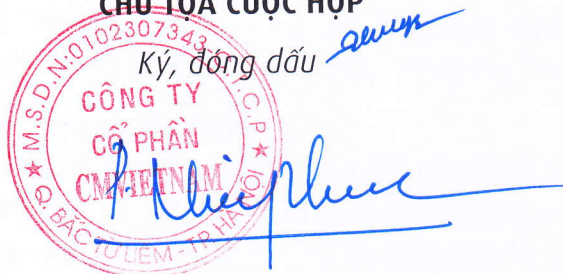 CHỦ TỌA CUỘC HỌP
Ký, đóng dấu
M.S.D.N:0102307343
C.P
CÔNG TY
CỔ PHẦN
CMVIETNAM
Q. BẮC TỪ LIÊM - TP. HÀ NỘI